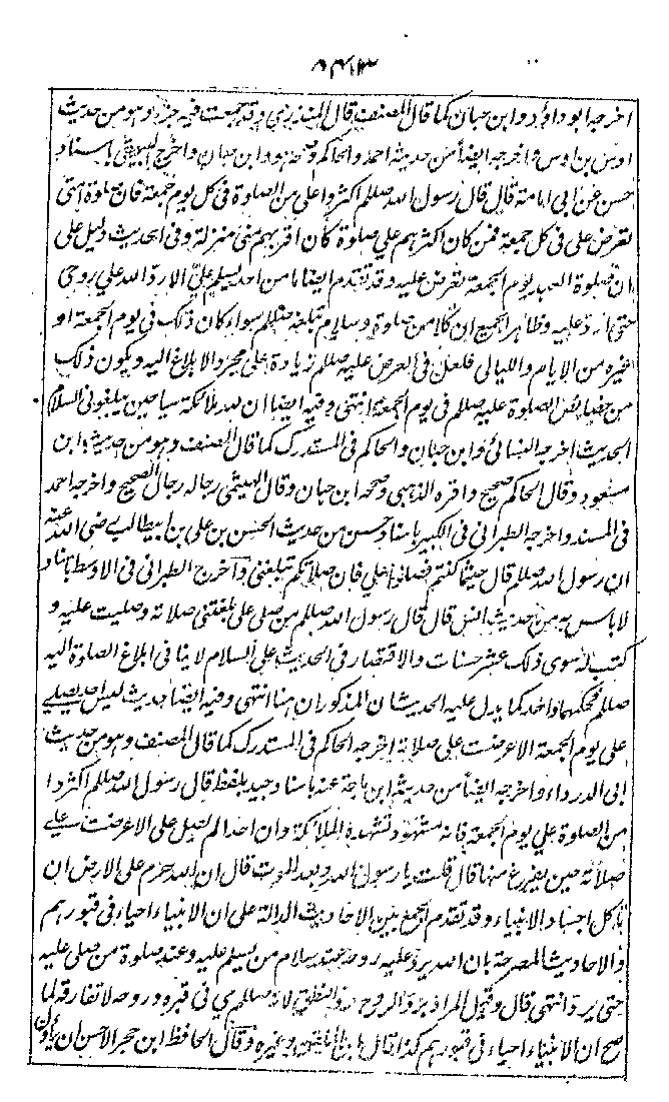 اخرجه ابو داؤد وابن حبان كما قال المصنف قال المنذرى وقد جمعت فيه جزءا وهو من حديث
اوس بن اوس واخرجه ايضا من حديثه احمد والحاكم وصححه هو وابن حبان واخرج البيهقي باسناد
حسن عن ابى امامة قال قال رسول الله صللم اكثروا على من الصلوة فى كل يوم جمعة فان صلوة امتى
تعرض على فى كل جمعة فمن كان اكثرهم على صلوة كان اقربهم منى منزلة وفى الحديث دليل على
ان صلوة العبد يوم الجمعة تعرض عليه وقد تقدم ايضا ما من احد يسلم علىّ الا رد الله على روحى
حتى ارد عليه وظاهر الجميع ان كلا من صلوة وسلام تبلغه صللم سواء كان ذلك فى يوم الجمعة او
غيره من الايام والليالى فلعل فى العرض عليه صللم زيادة على مجرد الابلاغ اليه ويكون ذلك
من خصائص الصلوة عليه صللم فى يوم الجمعة انتهى وفيه ايضا ان لله ملائكة سياحين يبلغونى السلام
الحديث اخرجه النسائى وابن حبان والحاكم فى المستدرك كما قال المصنف وهو من حديث ابن
مسعود وقال الحاكم صحيح واقره الذهبى وصححه ابن حبان وقال الهيثمى رجاله رجال الصحيح واخرجه احمد
فى المسند واخرجه الطبرانى فى الكبير باسناد حسن من حديث الحسن بن على بن ابيطالب رضى الله عنه
ان رسول الله صللم قال حيثما كنتم فصلوا على فان صلاتكم تبلغنى وآخرج الطبرانى فى الاوسط باسناد
لا باس به من حديث انس قال قال رسول الله صللم من صلى على بلغتنى صلاته وصليت عليه و
كتب له سوى ذلك عشر حسنات والاقتصار فى الحديث على السلام لا ينافى ابلاغ الصلوة اليه
صللم فحكمهما واحد كما يدل عليه الحديثان المذكوران هنا انتهى وفيه ايضا حديث ليس احد يصلى
على يوم الجمعة الا عرضت على صلاته اخرجه الحاكم فى المستدرك كما قال المصنف وهو من حديث
ابى الدرداء واخرجه ايضا من حديثه ابن ماجة عنه باسناد جيد بلفظ قال رسول الله صللم اكثروا
من الصلوة على يوم الجمعة فانه مشهود تشهده الملائكة وان احدا لم يصل على الا عرضت على
صلاته حين يفرغ منها قال قلت يا رسول الله وبعد الموت قال ان الله حرم على الارض ان
تأكل اجساد الانبياء وقد تقدم الجمع بين الاحاديث الدالة على ان الانبياء احياء فى قبورهم
والاحاديث المصرحة بان الله يرد عليه روحه عند سلام من يسلم عليه وعند صلوة من صلى عليه
حتى يرد انتهى قال وقيل المراد برد الروح رد النطق لانه صللم حى فى قبره وروحه لا تفارقه لما
صح ان الانبياء احياء فى قبورهم كذا قال ابن الملقن وغيره وقال الحافظ ابن حجر الاحسن ان يأول